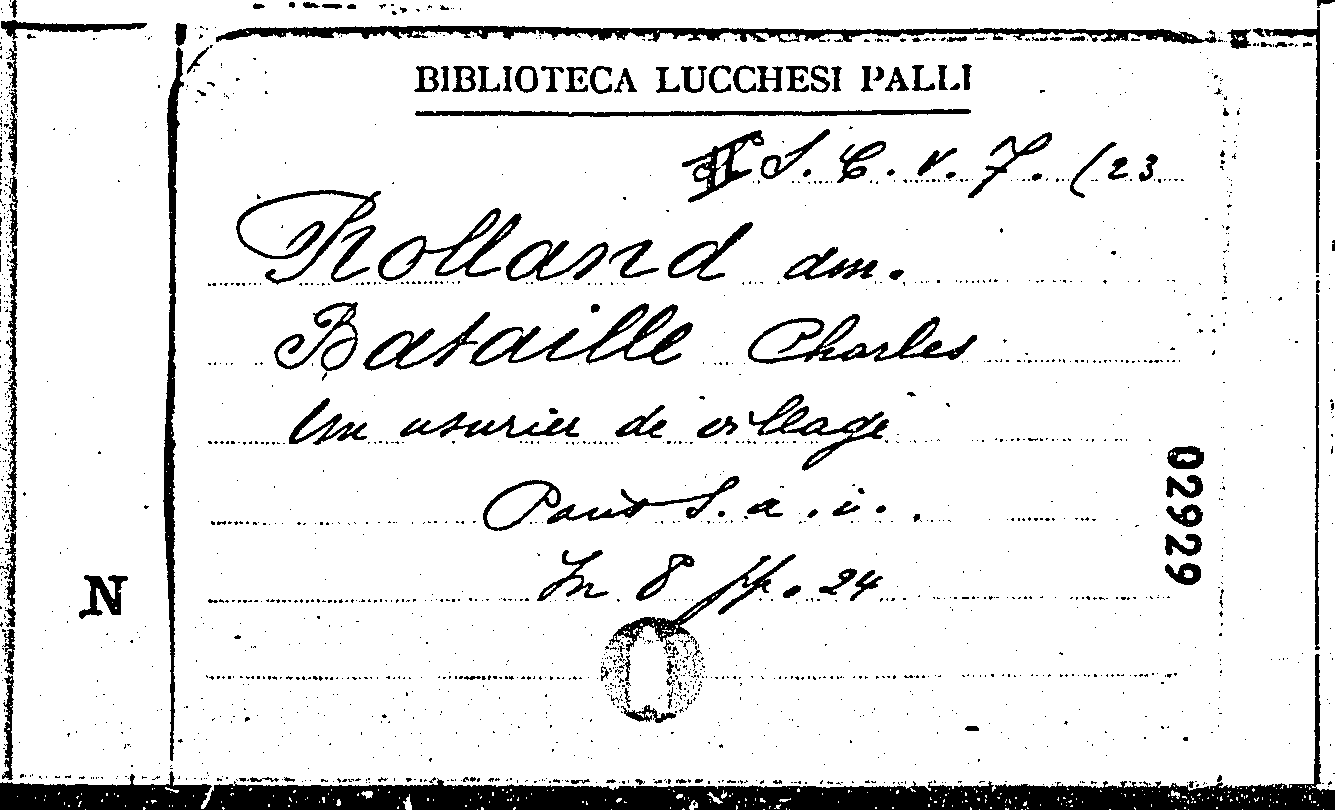 BIBLIOTECA LUCCHESI PALLI
S. C. V. 7. (23
Rolland am.
Bataille Charles
Un usurier de village
Paris S. a. i..
In 8 pp. 24
02929
N